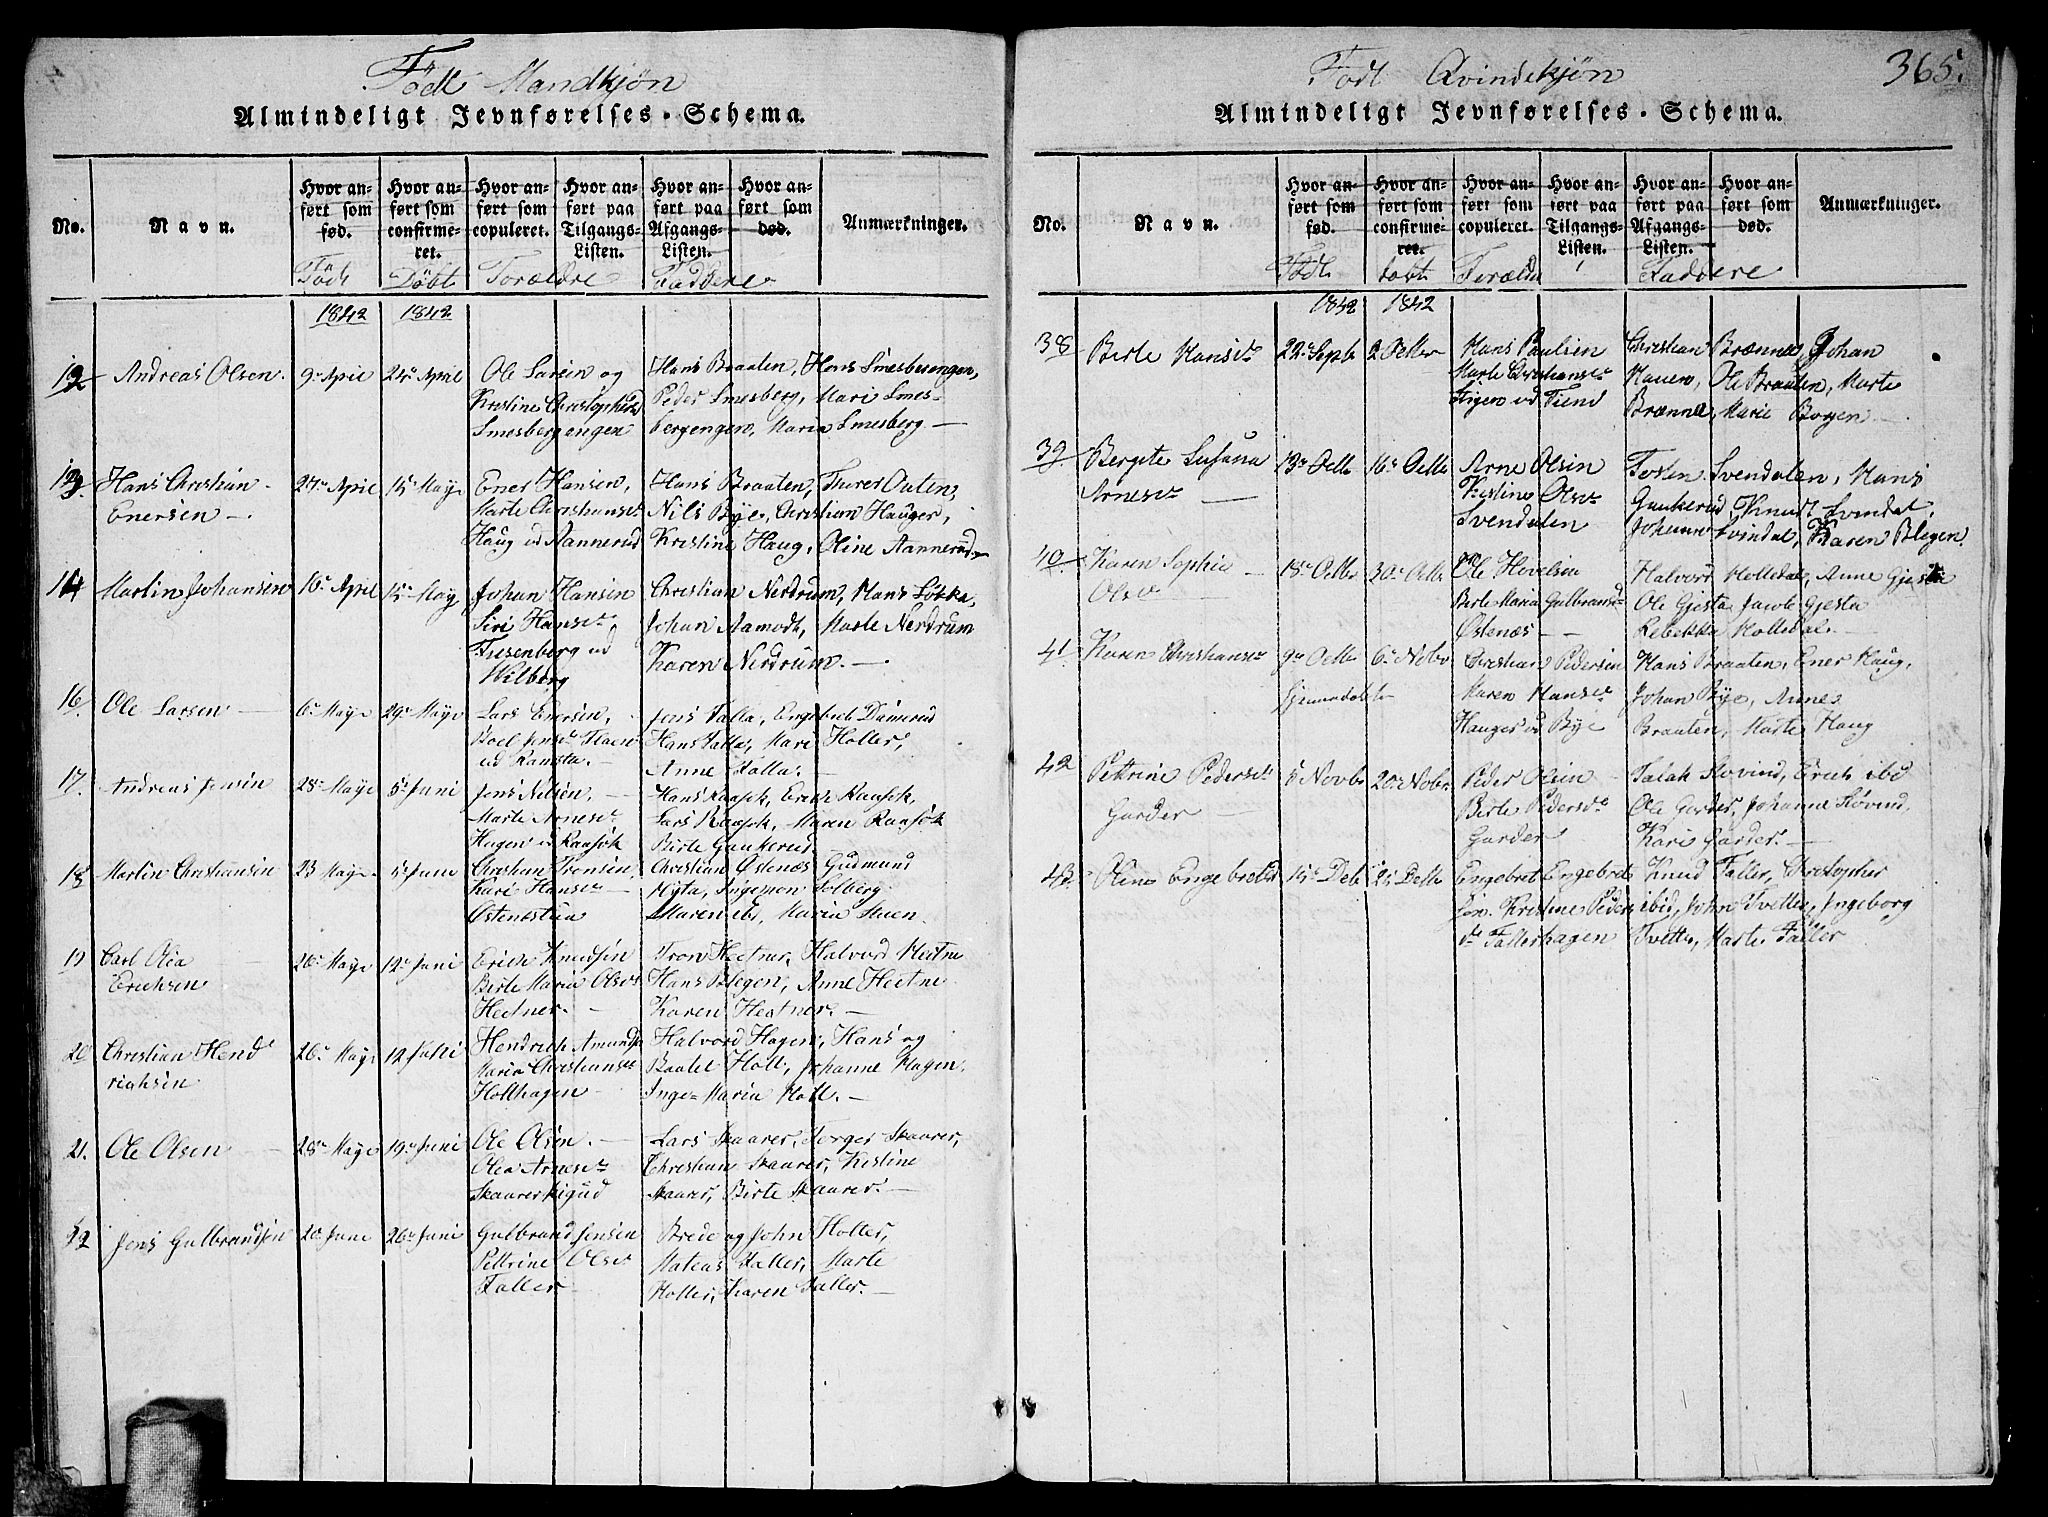 Födt Mandkjøn
Almindeligt Jevnførelses-Schema.
No.
Navn.
Hvor an-
ført som
fød.
Hvor an-
ført som
confirme-
ret.
Hvor an-
ført som
copuleret.
Hvor an-
ført paa
Tilgangs-
Listen.
Hvor an-
ført paa
Afgangs-
Listen.
Hvor an-
ført som
død.
Anmærkninger.
Födt Döbt Forældre Faddere
1842 1842
Andreas Olsen. 9de April 24de April
Ole Larsen og
Kristine Christophersd
Smesbergengen
Hans Braaten, Hans Smesbergengen,
Peder Smesberg, Mari Smes-
bergengen, Maria Smesberg —
Hans Christian
Enersen —
27de April 15de May
Ener Hansen,
Marte Christiansdr
Haug ud Aannerud
Hans Braaten, Thurer Outen,
Nils Bye, Christian Hauger,
Kristine Haug, Oline Aannerud
14 Martin Johansen 10de April 15de May
Johan Hansen
Siri Hansdr
Tusenberg ud
Wilberg
Christian Nerdrum, Hans Løkka,
Johan Aamodt, Marte Nerdrum
Karen Nerdrum. —
16. Ole Larsen — 6de Maye 29de Maye
Lars Enersen,
Boel Jensdr Flaen
ud Ramsta. —
Jens Falla, Engebret Damerud
Hans Falla, Mari Holler,
Anne Falla. —
17. Andreas Jensen 28de Maye 5te Juni
Jens Nilsen, —
Marte Arnesdr
Hagen ud Raasok
Hans Raasok, Erich Raasok,
Lars Raasok, Maren Raasok
Birte Gaukerud. —
18 Martin Christiansen 23 Maye 5te Juni
Christian Tronsen,
Kari Hansdr —
Ostenestua
Christian Østenæs Gudmund
Myta, Ingemon Solberg
Maren ibd, Maria Stuen.
19 Carl Olea
Erichsen
26de Maye 12te Juni
Erich Knudsen
Birte Maria Olsdr
Hectner. —
Tron Hectner, Halvord Hectne
Hans Blegen, Anne Hectne
Karen Hectner. —
20 Christian Hend
richsen
26de Maye 12 Juni
Hendrich Amunds
Maria Christiansdr
Holthagen —
Halvord Hagen, Hans og
Baalet Holt, Johanne Hagen,
Inge=Maria Holt. —
21. Ole Olsen — 28de Maye 19de Juni
Ole Olsen. —
Olea Arnesdr
Skaurerkigud
Lars Skaurer, Torger Skaurer,
Christian Skaurer, Kistine
Skaurer, Birte Skaurer. —
22 Jens Gulbrandsen 20 June 26de Juni
Gulbrand Jensen
Pettrine Olsdr
Faller
Brede og John Holler,
Mateas Faller, Marte
Holler, Karen Faller. —
Födt Qvindekjøn 365.
Almindeligt Jevnførelses-Schema.
No.
Navn.
Hvor an-
ført som
fød.
Hvor an-
ført som
confirme-
ret.
Hvor an-
ført som
copuleret.
Hvor an-
ført paa
Tilgangs-
Listen.
Hvor an-
ført paa
Afgangs-
Listen.
Hvor an-
ført som
død.
Anmærkninger.
Födt döbt Forældre Faddere
1842 1842
38 Birte Hansdr 22de Septb 2 Octbr
Hans Paulsen
Marte Christiansdr
Stigen ud Tiend
Christian Brænna, Johan
Mauen, Ole Braaten, Marte
Brænna, Marie Borgen —
39. Bergete Susana
Arnesdr —
13de Octb 16de Octb
Arne Olsen
Kistine Olsdr
Svendalen
Tosten Svendalen, Hans
Gaukerud, Knudt Svendal,
Johanne Svindal, Karen Blegen.
40. Karen Sophie —
Olsdr —
18de Octbr 30de Octb
Ole Hovelsen
Birte Maria Gulbransd
Østenæs — —
Halvord Holledal, Anne Gjesta
Ole Gjesta, Jacob Gjesta
Rebekka Holledal. —
41. Karen Christiansdr 9de Octb 6te Novbr
hjemmedøbt
Christian Pedersen
Karen Hansdr
Hauger ud Bye
Hans Braaten, Ener Haug,
Johan Bye, Anne
Braaten, Marte Haug
42 Pettrine Pedersdr
Garder —
5 Novbr 20de Nobr
Peder Olsen
Birte Pedersdr
Garder
Talak Rovind, Erich ibd
Ole Garder, Johanne Rövind,
Kari Garder. —
43. Oline Engebretsd 15de Decb 25 Decb
Engebret Engebret
sen. Kristine Peders
dr Fallerhagen
Knud Faller, Christopher
ibid, John Tvetter, Ingeborg
Tvetter, Marte Faller